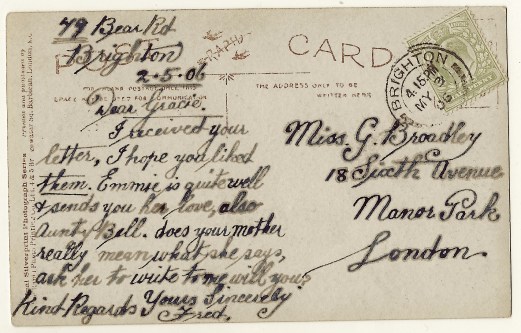 79 Bear Rd
Brighton
2-5-06
Dear Gracie.
I received your
letter, I hope you liked
them. Emmie is quite well
& sends you her love, also
Aunty Bell. does your mother
really mean what she says,
ask her to write to me will you?
Kind Regards Yours Sincerely
Fred.
CARD
THE ADDRESS ONLY TO BE
WRITTEN HERE
BRIGHTON
4.15PM
MY
06
Miss. G. Broadley
18 Sixth Avenue
Manor Park
London.
Silverprint Photograph Series